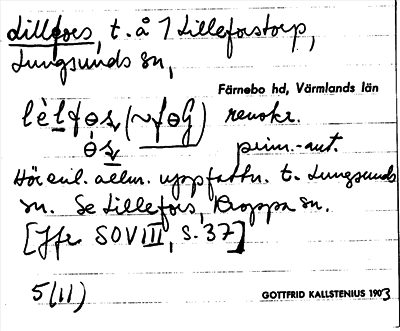 Lillfors, t. å 1 Lilleforstorp,
Lungsunds sn,
Färnebo hd, Värmlands län
lèlfɵs, (~fɵG) renskr.
ɵ́s, prim.-aut.
Hör enl. allm. uppfattn. t. Lungsunds
sn. Se Lillefors, Kroppa sn.
[Jfr SOV III, s. 37]
5(11)
GOTTFRID KALLSTENIUS 1903